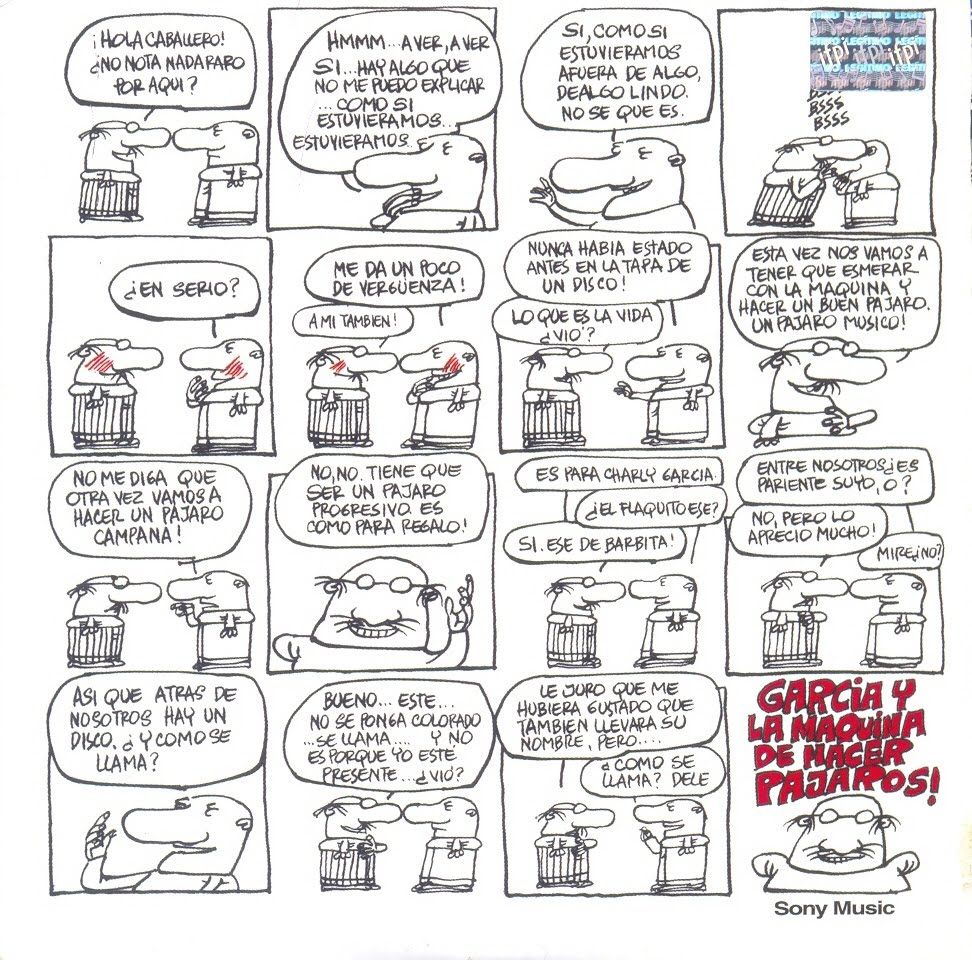 ¡HOLA CABALLERO!
¿NO NOTA NADA RARO
POR AQUI?
HMMM...A VER, A VER
SI...HAY ALGO QUE
NO ME PUEDO EXPLICAR
...COMO SI
ESTUVIERAMOS...
ESTUVIERAMOS...
SI, COMO SI
ESTUVIERAMOS
AFUERA DE ALGO,
DE ALGO LINDO.
NO SE QUE ES.
LEGITIMO
ifpi
BSSS
BSSS
¿EN SERIO?
ME DA UN POCO
DE VERGÜENZA!
A MI TAMBIEN!
NUNCA HABIA ESTADO
ANTES EN LA TAPA DE
UN DISCO!
LO QUE ES LA VIDA
¿VIO?
ESTA VEZ NOS VAMOS A
TENER QUE ESMERAR
CON LA MAQUINA Y
HACER UN BUEN PAJARO.
UN PAJARO MUSICO!
NO ME DIGA QUE
OTRA VEZ VAMOS A
HACER UN PAJARO
CAMPANA!
NO, NO. TIENE QUE
SER UN PAJARO
PROGRESIVO. ES
COMO PARA REGALO!
ES PARA CHARLY GARCIA.
¿EL FLAQUITO ESE?
SI. ESE DE BARBITA!
ENTRE NOSOTROS ¿ES
PARIENTE SUYO, O?
NO, PERO LO
APRECIO MUCHO!
MIRE ¿NO?
ASI QUE ATRAS DE
NOSOTROS HAY UN
DISCO. ¿Y COMO SE
LLAMA?
BUENO... ESTE...
NO SE PONGA COLORADO
...SE LLAMA.... Y NO
ES PORQUE YO ESTE
PRESENTE...¿VIO?
LE JURO QUE ME
HUBIERA GUSTADO QUE
TAMBIEN LLEVARA SU
NOMBRE, PERO....
¿COMO SE
LLAMA? DELE
GARCIA Y
LA MAQUINA
DE HACER
PAJAROS!
Sony Music